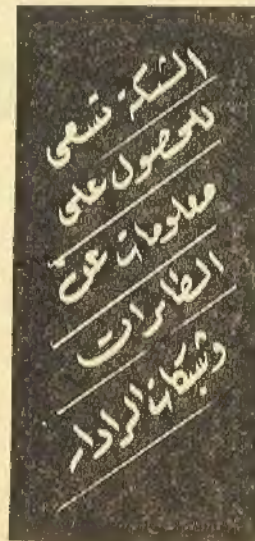 الشبكة تسعى
للحصول على
معلومات عن
الطائرات
وشبكات الرادار